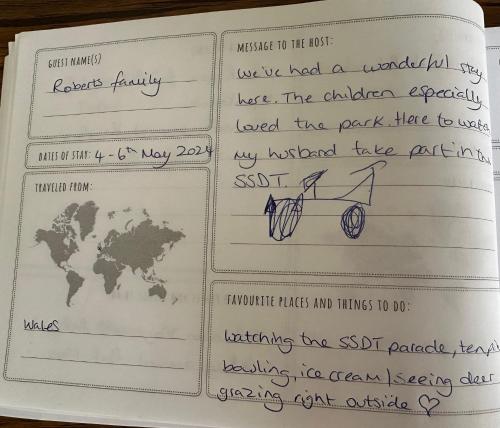 GUEST NAME(S)
Roberts family
DATES OF STAY: 4-6th May 2024
TRAVELED FROM:
Wales
MESSAGE TO THE HOST:
We've had a wonderful stay
here. The children especially
loved the park. Here to watch
my husband take part in the
SSDT.
FAVOURITE PLACES AND THINGS TO DO:
Watching the SSDT parade, tenpin
bowling, ice cream/seeing deer
grazing right outside ♡